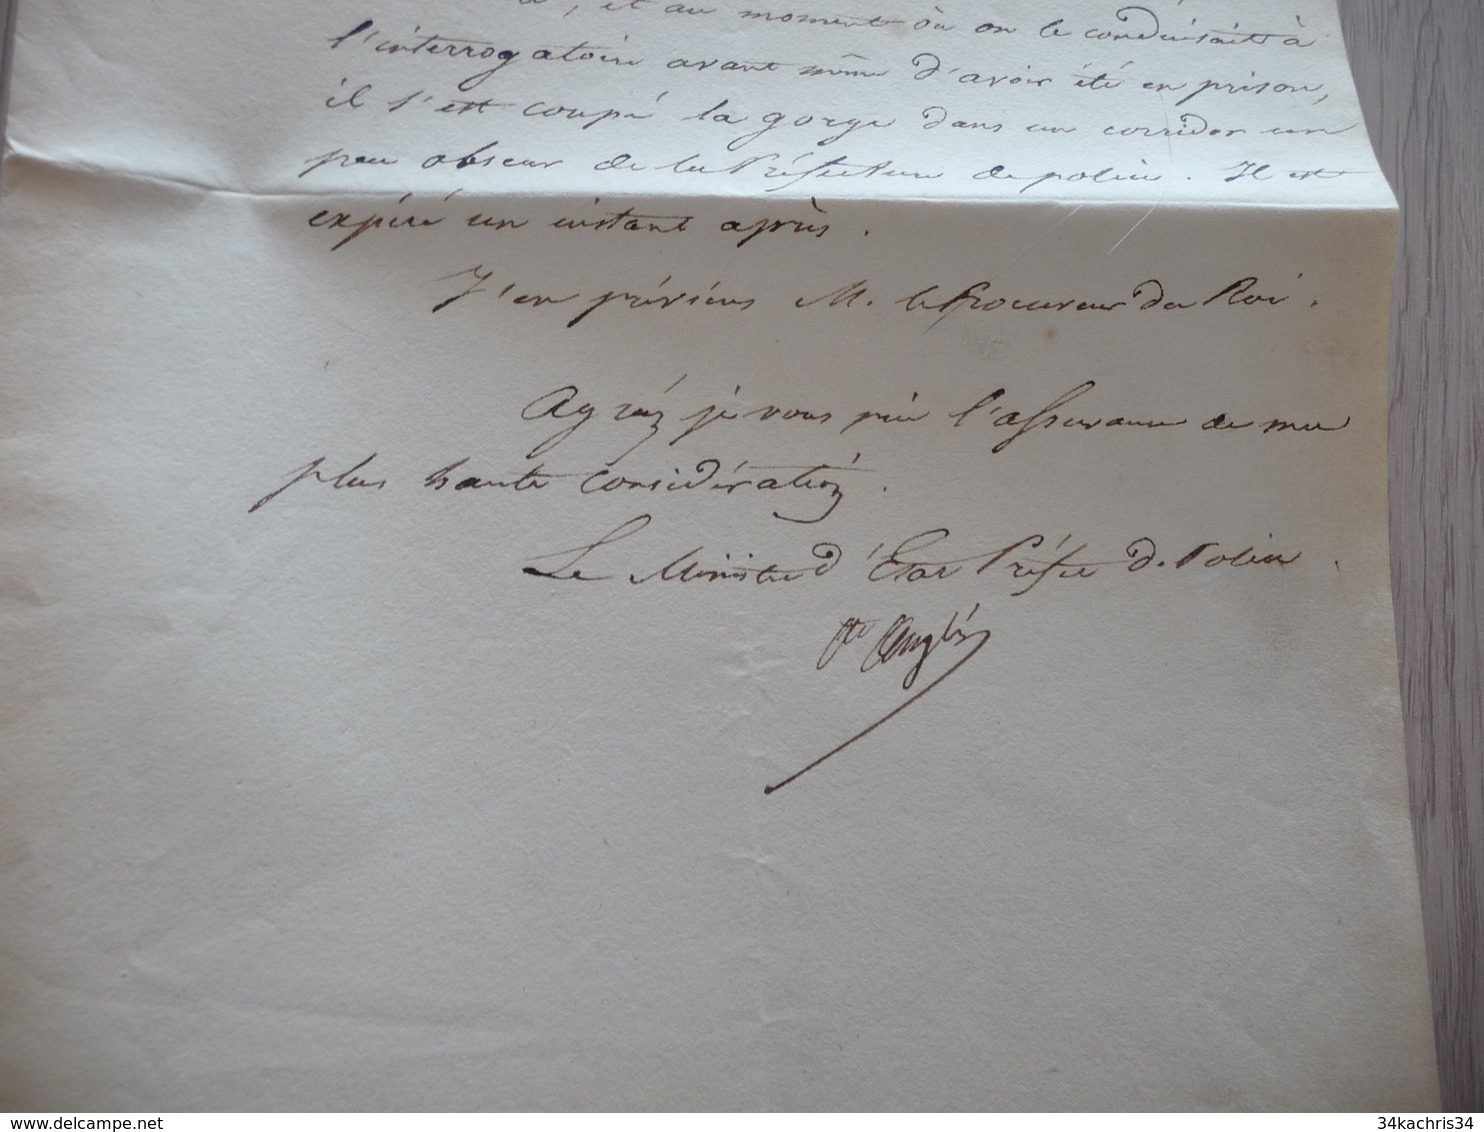 , et au moment où on le conduisait à
l'interrogatoire avant même d'avoir été en prison,
il s'est coupé la gorge dans un corridor un
peu obscur de la Préfecture de police. Il est
expiré un instant après.
J'en préviens M. le Procureur du Roi.
Agréez je vous prie l'assurance de ma
plus haute considération.
Le Ministre d'Etat Préfet de Police.
Cte Anglès
34kachris34
delcampe.net